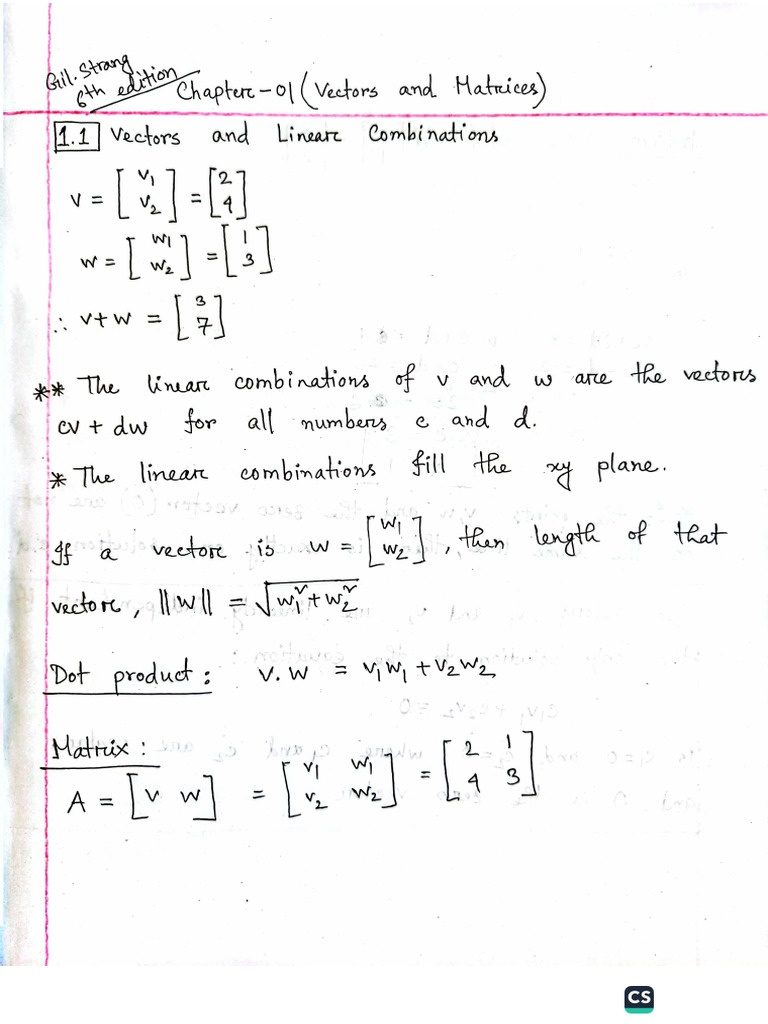 Gil. Strang
6th edition
Chapter-01 (Vectors and Matrices)
1.1 Vectors and Linear Combinations
v = [v₁ v₂] = [2 4]
w = [w₁ w₂] = [1 3]
∴ v+w = [3 7]
** The linear combinations of v and w are the vectors
cv + dw for all numbers c and d.
* The linear combinations fill the xy plane.
If a vector is w = [w₁ w₂], then length of that
vector, ||w|| = √(w₁² + w₂²)
Dot product: v.w = v₁w₁ + v₂w₂
Matrix:
A = [v w] = [v₁ w₁ v₂ w₂] = [2 1 4 3]
CS